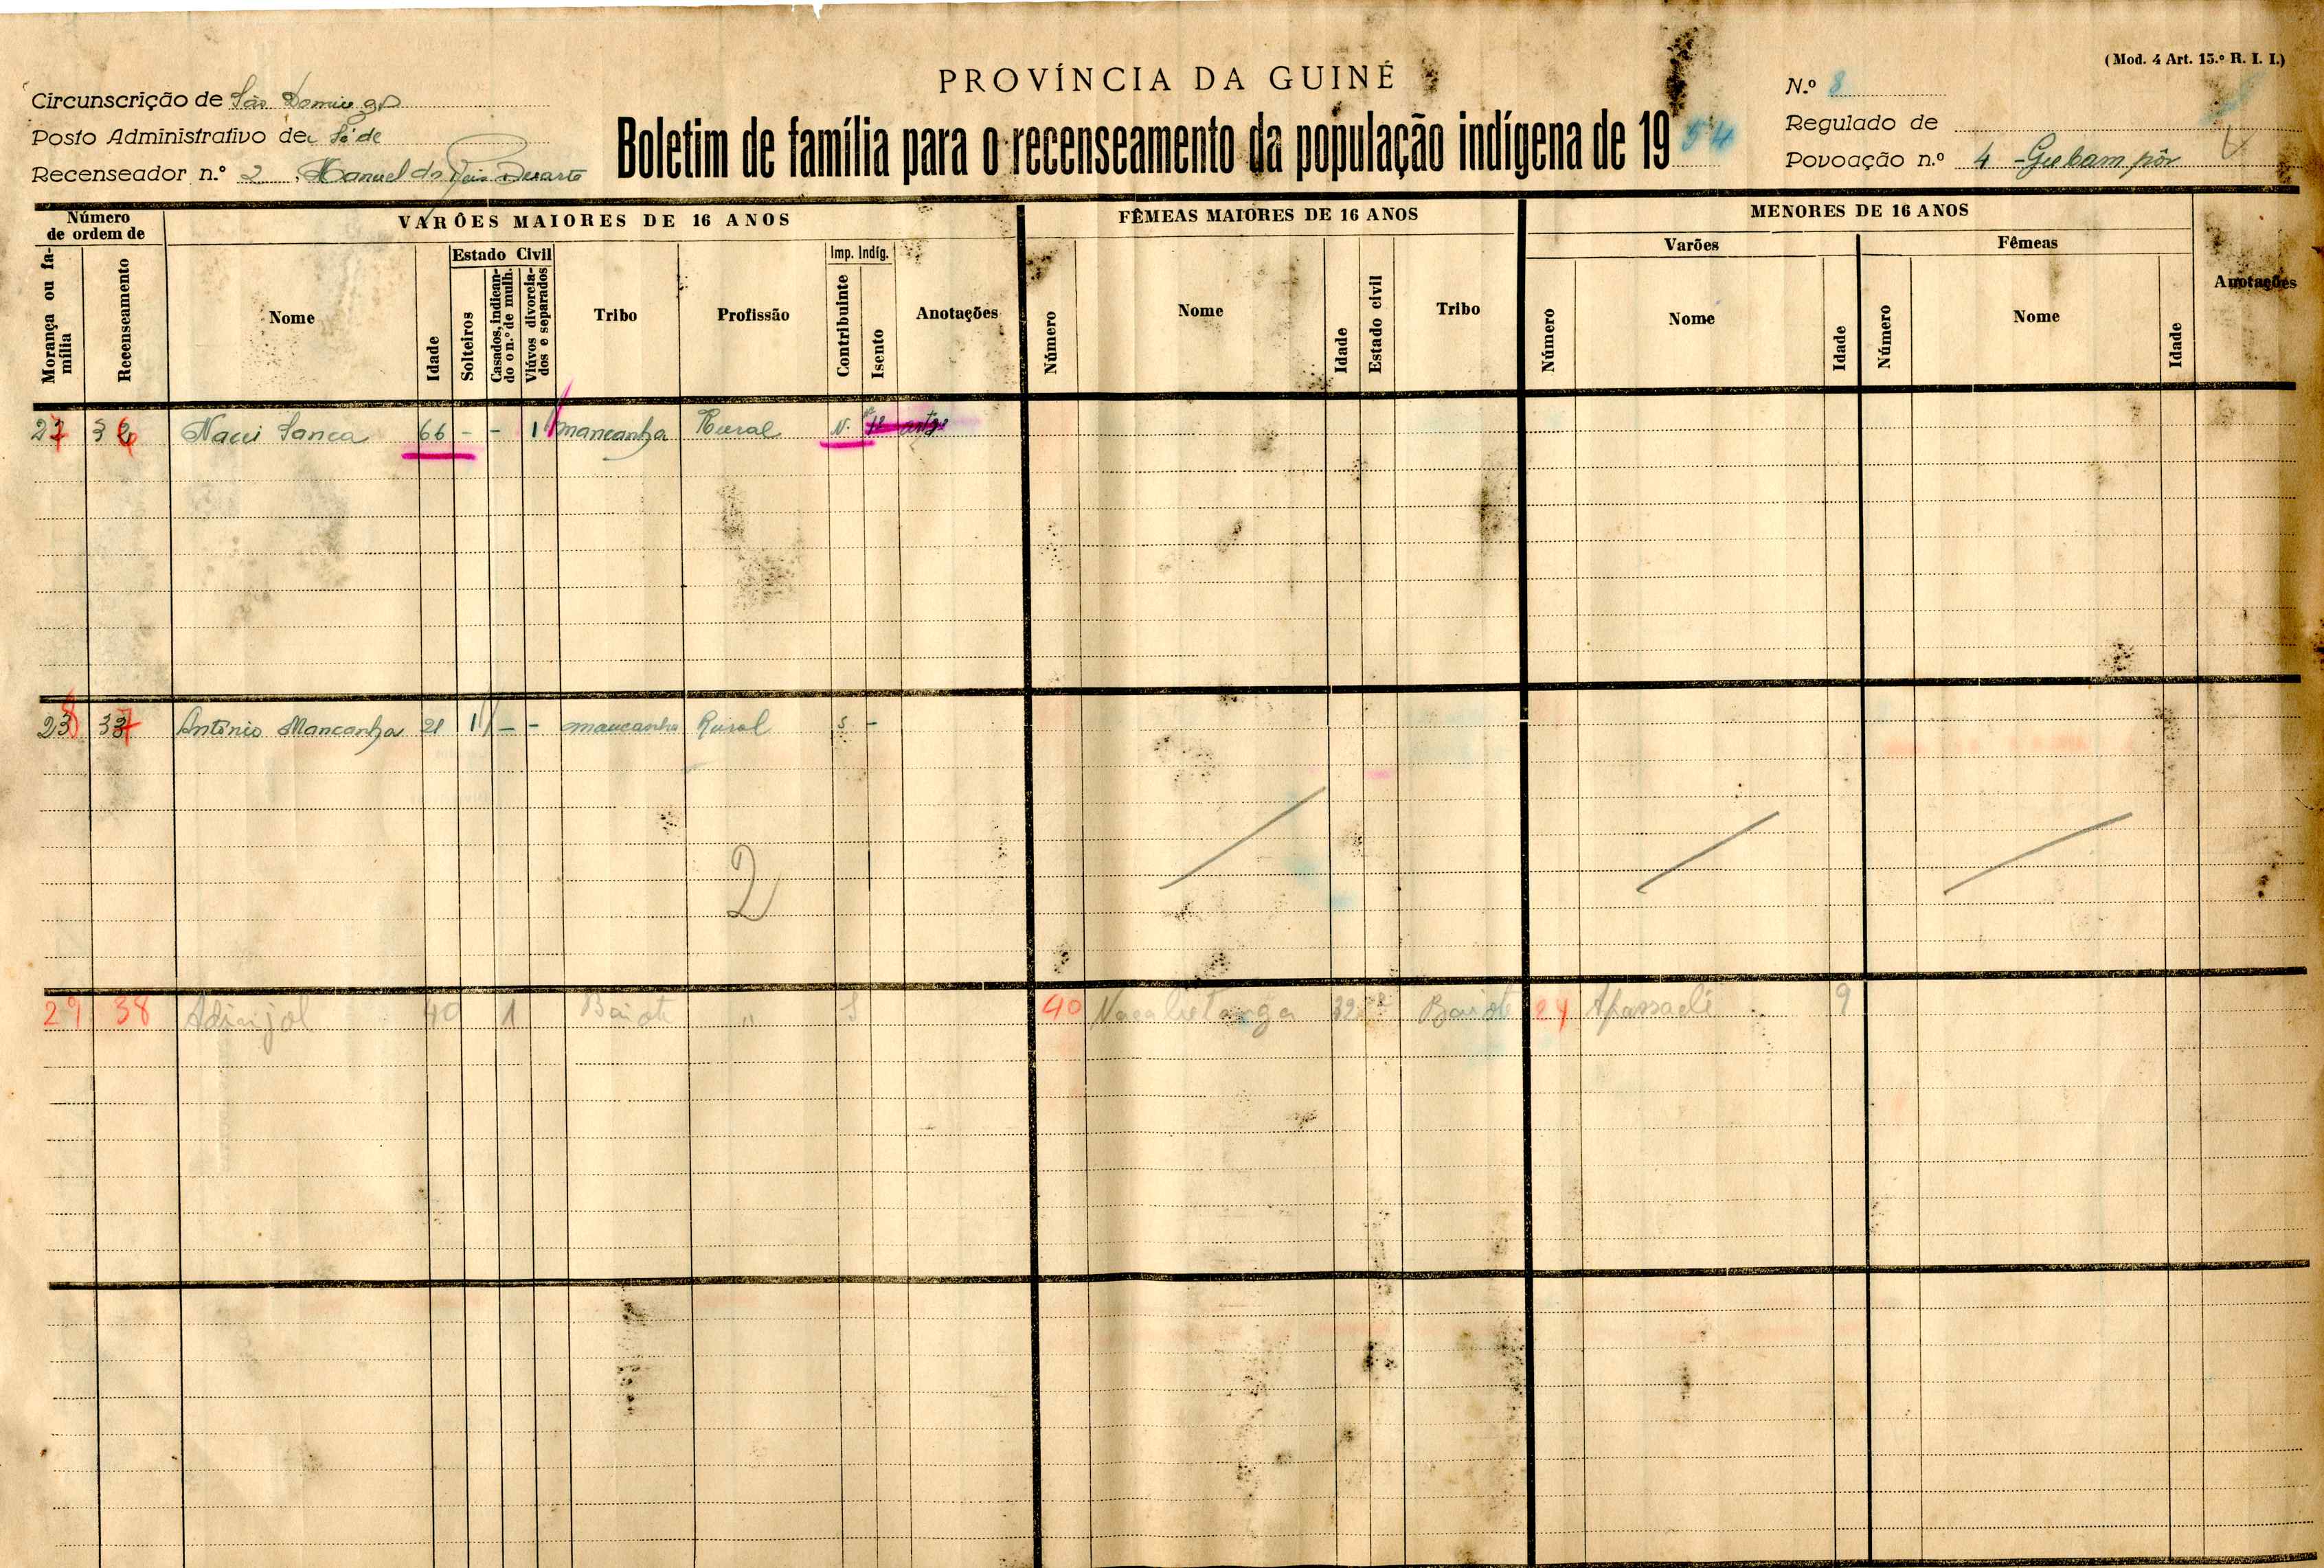 (Mod. 4 Art. 15.º R. I. I.)
PROVÍNCIA DA GUINÉ
Boletim de família para o recenseamento da população indígena de 1954
Circunscrição de São Domingos
Posto Administrativo de Séde
Recenseador n.º 2 Manuel dos Reis Duarte
N.º 8
Regulado de
Povoação n.º 4 -
Número de ordem de
VARÕES MAIORES DE 16 ANOS
FÊMEAS MAIORES DE 16 ANOS
MENORES DE 16 ANOS
Varões
Fêmeas
Morança ou família
Recenseamento
Nome
Idade
Estado Civil
Solteiros
Casados, indicando o n.º de mulh.
Viúvos divorciados e separados
Tribo
Profissão
Imp. Indíg.
Contribuinte
Isento
Anotações
Número
Nome
Idade
Estado civil
Tribo
Número
Nome
Idade
Número
Nome
Idade
Anotações
27 36 Nacui Sanca 66 - - 1 mancanha Rural N.
28 37 António Mancanha 21 1 - - mancanha Rural S -
2
29 38 Adinjol 40 1 Baiote " S 40 32 Baiote 24 9